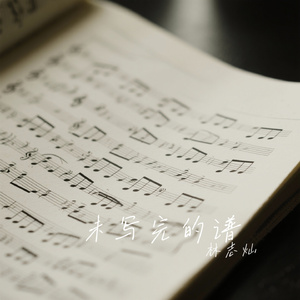 未写完的谱
林志灿